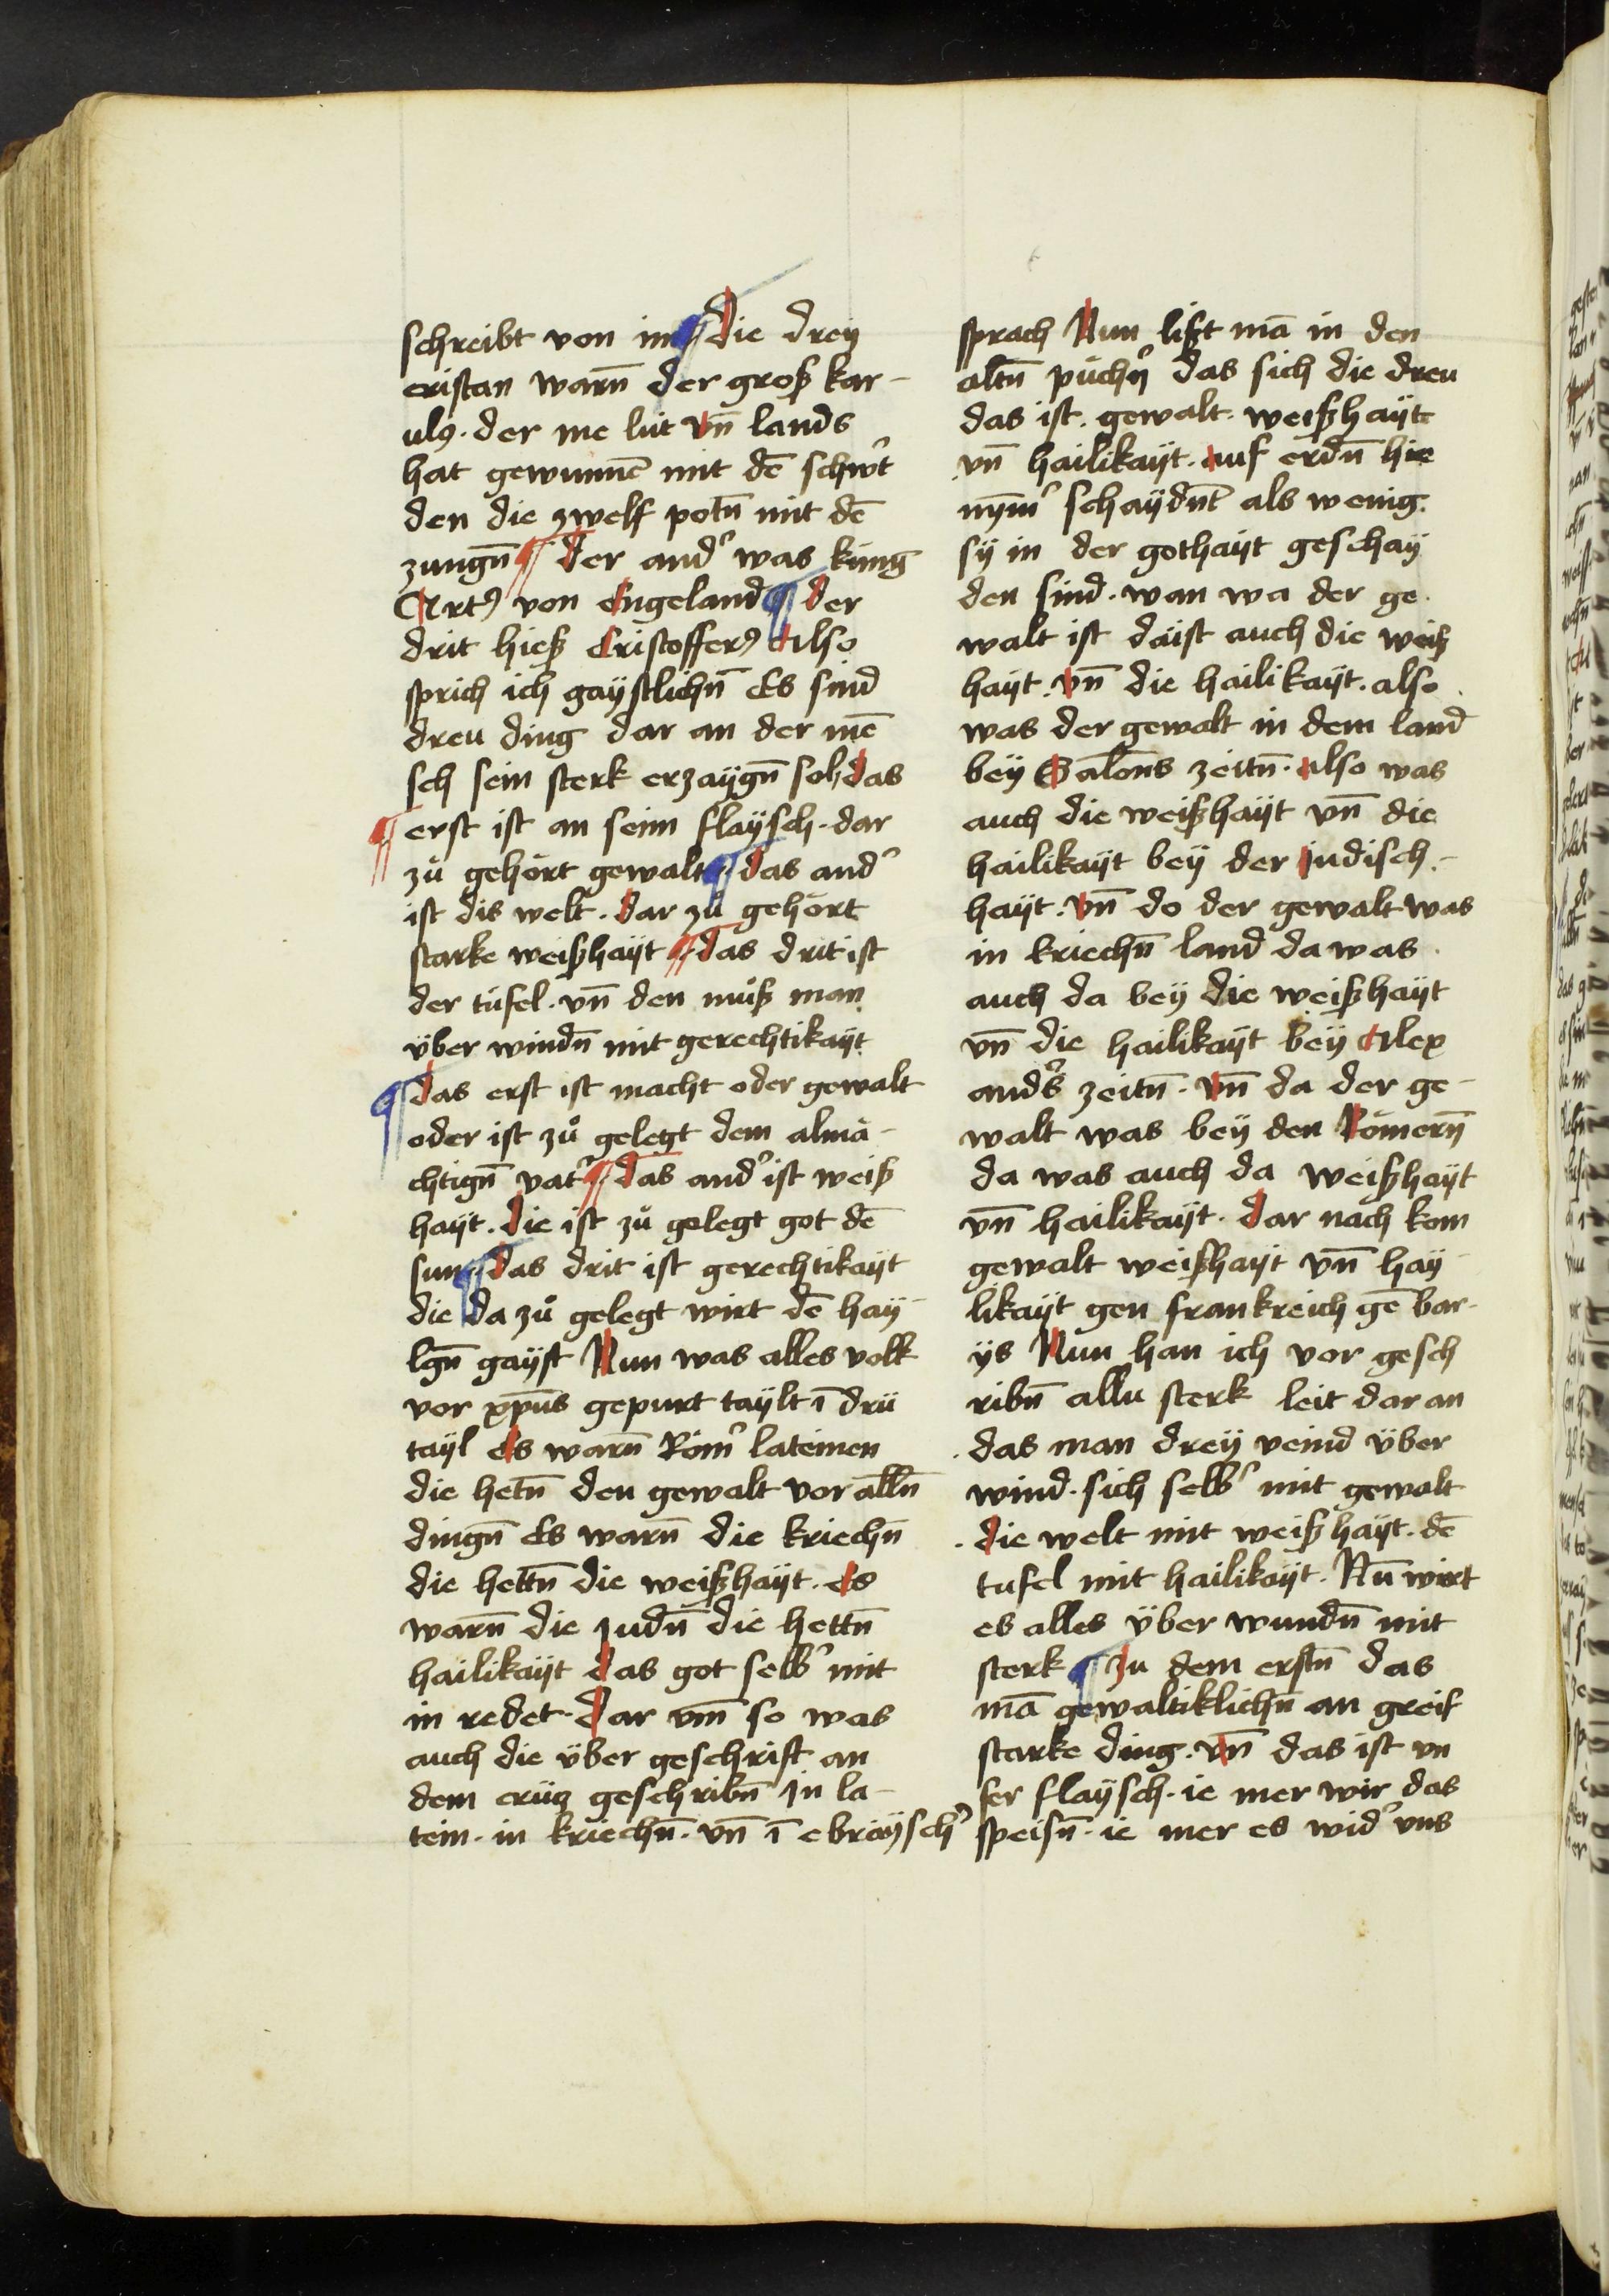 schreibt von im ¶ Die dreÿ
cristan warn̄ der groß kar-
ulꝯ. der me lüt vn̄ lands
hat gewunnē mit dē schwˀt
den die zwelf potn̄ mit dē
zungn̄ ¶ Der andˀ was küng
Artꝯ von Engeland ¶ der
drit hieß Cristofferꝯ Also
sprich ich gaÿstlichn̄ Es sind
dreu ding dar an der mē
sch sein sterk erzaÿgn̄ sol, das
¶ erst ist an seim flaÿsch. dar
zů gehört gewalt ¶ das andˀ
ist dis welt. dar zů gehört
starke weißhaÿt ¶ das drit ist
der tüfel. vn̄ den můß man
über windn̄ mit gerechtikaÿt
¶ das erst ist macht oder gewalt
oder ist zů gelegt dem almä-
chtign̄ vatˀ ¶ das andˀ ist weiß
haÿt. die ist zů gelegt got dē
sun ¶ das drit ist gerechtikaÿt
die da zů gelegt wirt dē haÿ-
lgn̄ gaÿst Nun was alles volk
vor xp̄us gepurt taÿlt ī drü
taÿl Es warn̄ Römˀ lateinen
die hetn̄ den gewalt vor alln̄
dingn̄ Es warn̄ die kriechn̄
die hettn̄ die weißhaÿt. Es
warn̄ die Judn̄ die hettn̄
hailikaÿt das got selbˀ mit
in redet. Dar vm̄ so was
auch die über geschrift an
dem crüz geschribn̄ Jn la-
tein. in kriechn̄. vn̄ ī ebräÿschˀ
sprach Nun lißt mā in den
altn̄ püchn̄ das sich die dreu
das ist. gewalt. weißhaÿt
vn̄ hailikaÿt. auf erdn̄ hie
nÿm̄ˀ schaÿdn̄t als wenig.
sÿ in der gothaÿt geschaÿ
den sind. wan wa der ge.
walt ist daist auch die weiß
haÿt. vn̄ die hailikaÿt. also
was der gewalt in dem land
beÿ Salons zeitn̄. also was
auch die weißhaÿt vn̄ die
hailikaÿt beÿ der Judisch.-
haÿt. vn̄ do der gewalt was
in kriechn̄ land da was
auch da beÿ die weißhaÿt
vn̄ die hailikaÿt beÿ Alex
andˀs zeitn̄. vn̄ da der ge-
walt was beÿ den Römern̄
da was auch da weißhaÿt
vn̄ hailikaÿt. Dar nach kom
gewalt weißhaÿt vn̄ haÿ-
likaÿt gen frankreich gē bar-
ÿs Nun han ich vor gesch
ribn̄ allu sterk leit dar an
das man dreÿ veind über
wind. sich selbˀ mit gewalt
. die welt mit weißhaÿt. dē
tufel mit hailikaÿt. Nū wirt
es alles über wundn̄ mit
sterk ¶ Zu dem erstn̄ das
mā gewaltiklichn̄ an greif
starke ding. vn̄ das ist vn
ser flaÿsch. ie mer wir das
speisn̄. ie mer es widˀ vns